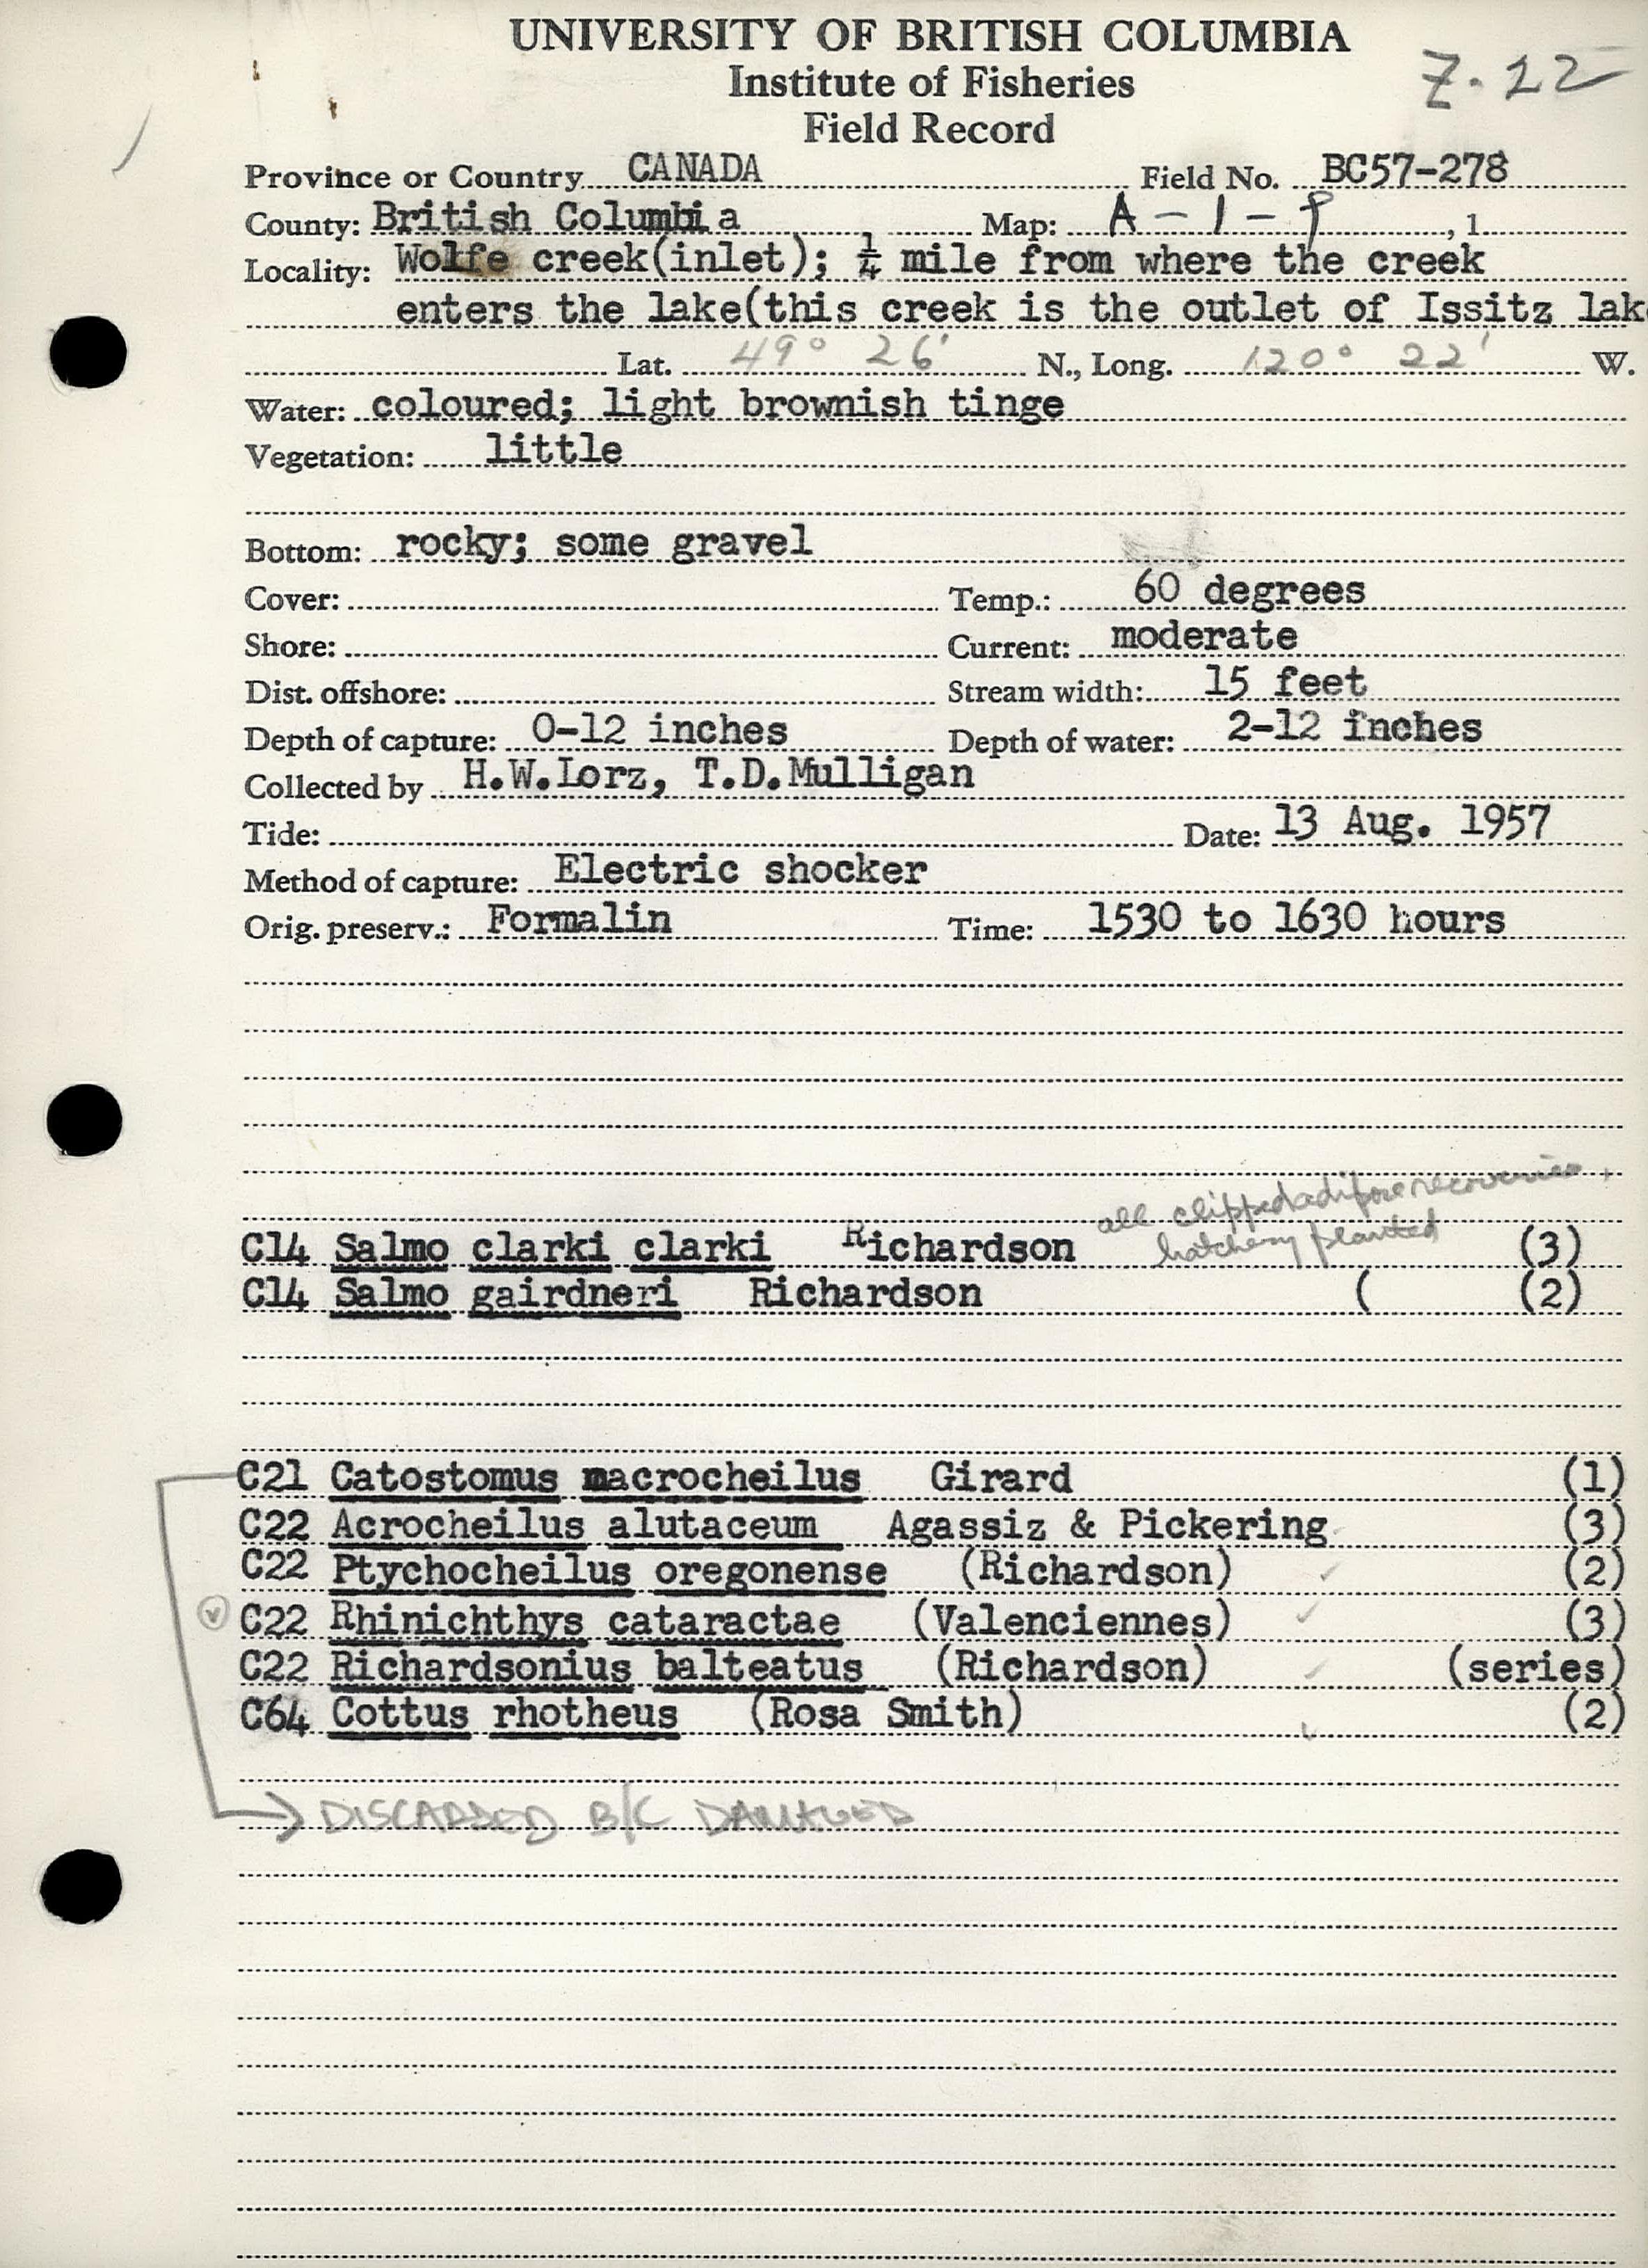 UNIVERSITY OF BRITISH COLUMBIA
Z-22
Institute of Fisheries
Field Record
Province or Country CANADA Field No. BC57-278
County: British Columbia Map: A-1-9, 1
Locality: Wolfe creek(inlet); ¼ mile from where the creek
enters the lake(this creek is the outlet of Issitz lak
Lat. 49° 26' N., Long. 120° 22' W.
Water: coloured; light brownish tinge
Vegetation: little
Bottom: rocky; some gravel
Cover: Temp.: 60 degrees
Shore: Current: moderate
Dist. offshore: Stream width: 15 feet
Depth of capture: 0-12 inches Depth of water: 2-12 inches
Collected by H.W.Lorz, T.D.Mulligan
Tide: Date: 13 Aug. 1957
Method of capture: Electric shocker
Orig. preserv.: Formalin Time: 1530 to 1630 hours
all clipped adipose recoveries,
hatchery planted
C14 Salmo clarki clarki Richardson (3)
C14 Salmo gairdneri Richardson ( (2)
C21 Catostomus macrocheilus Girard (1)
C22 Acrocheilus alutaceum Agassiz & Pickering (3)
C22 Ptychocheilus oregonense (Richardson) ✓ (2)
v C22 Rhinichthys cataractae (Valenciennes) ✓ (3)
C22 Richardsonius balteatus (Richardson) ✓ (series)
C64 Cottus rhotheus (Rosa Smith) ✓ (2)
→ DISCARDED B/C DAMAGED